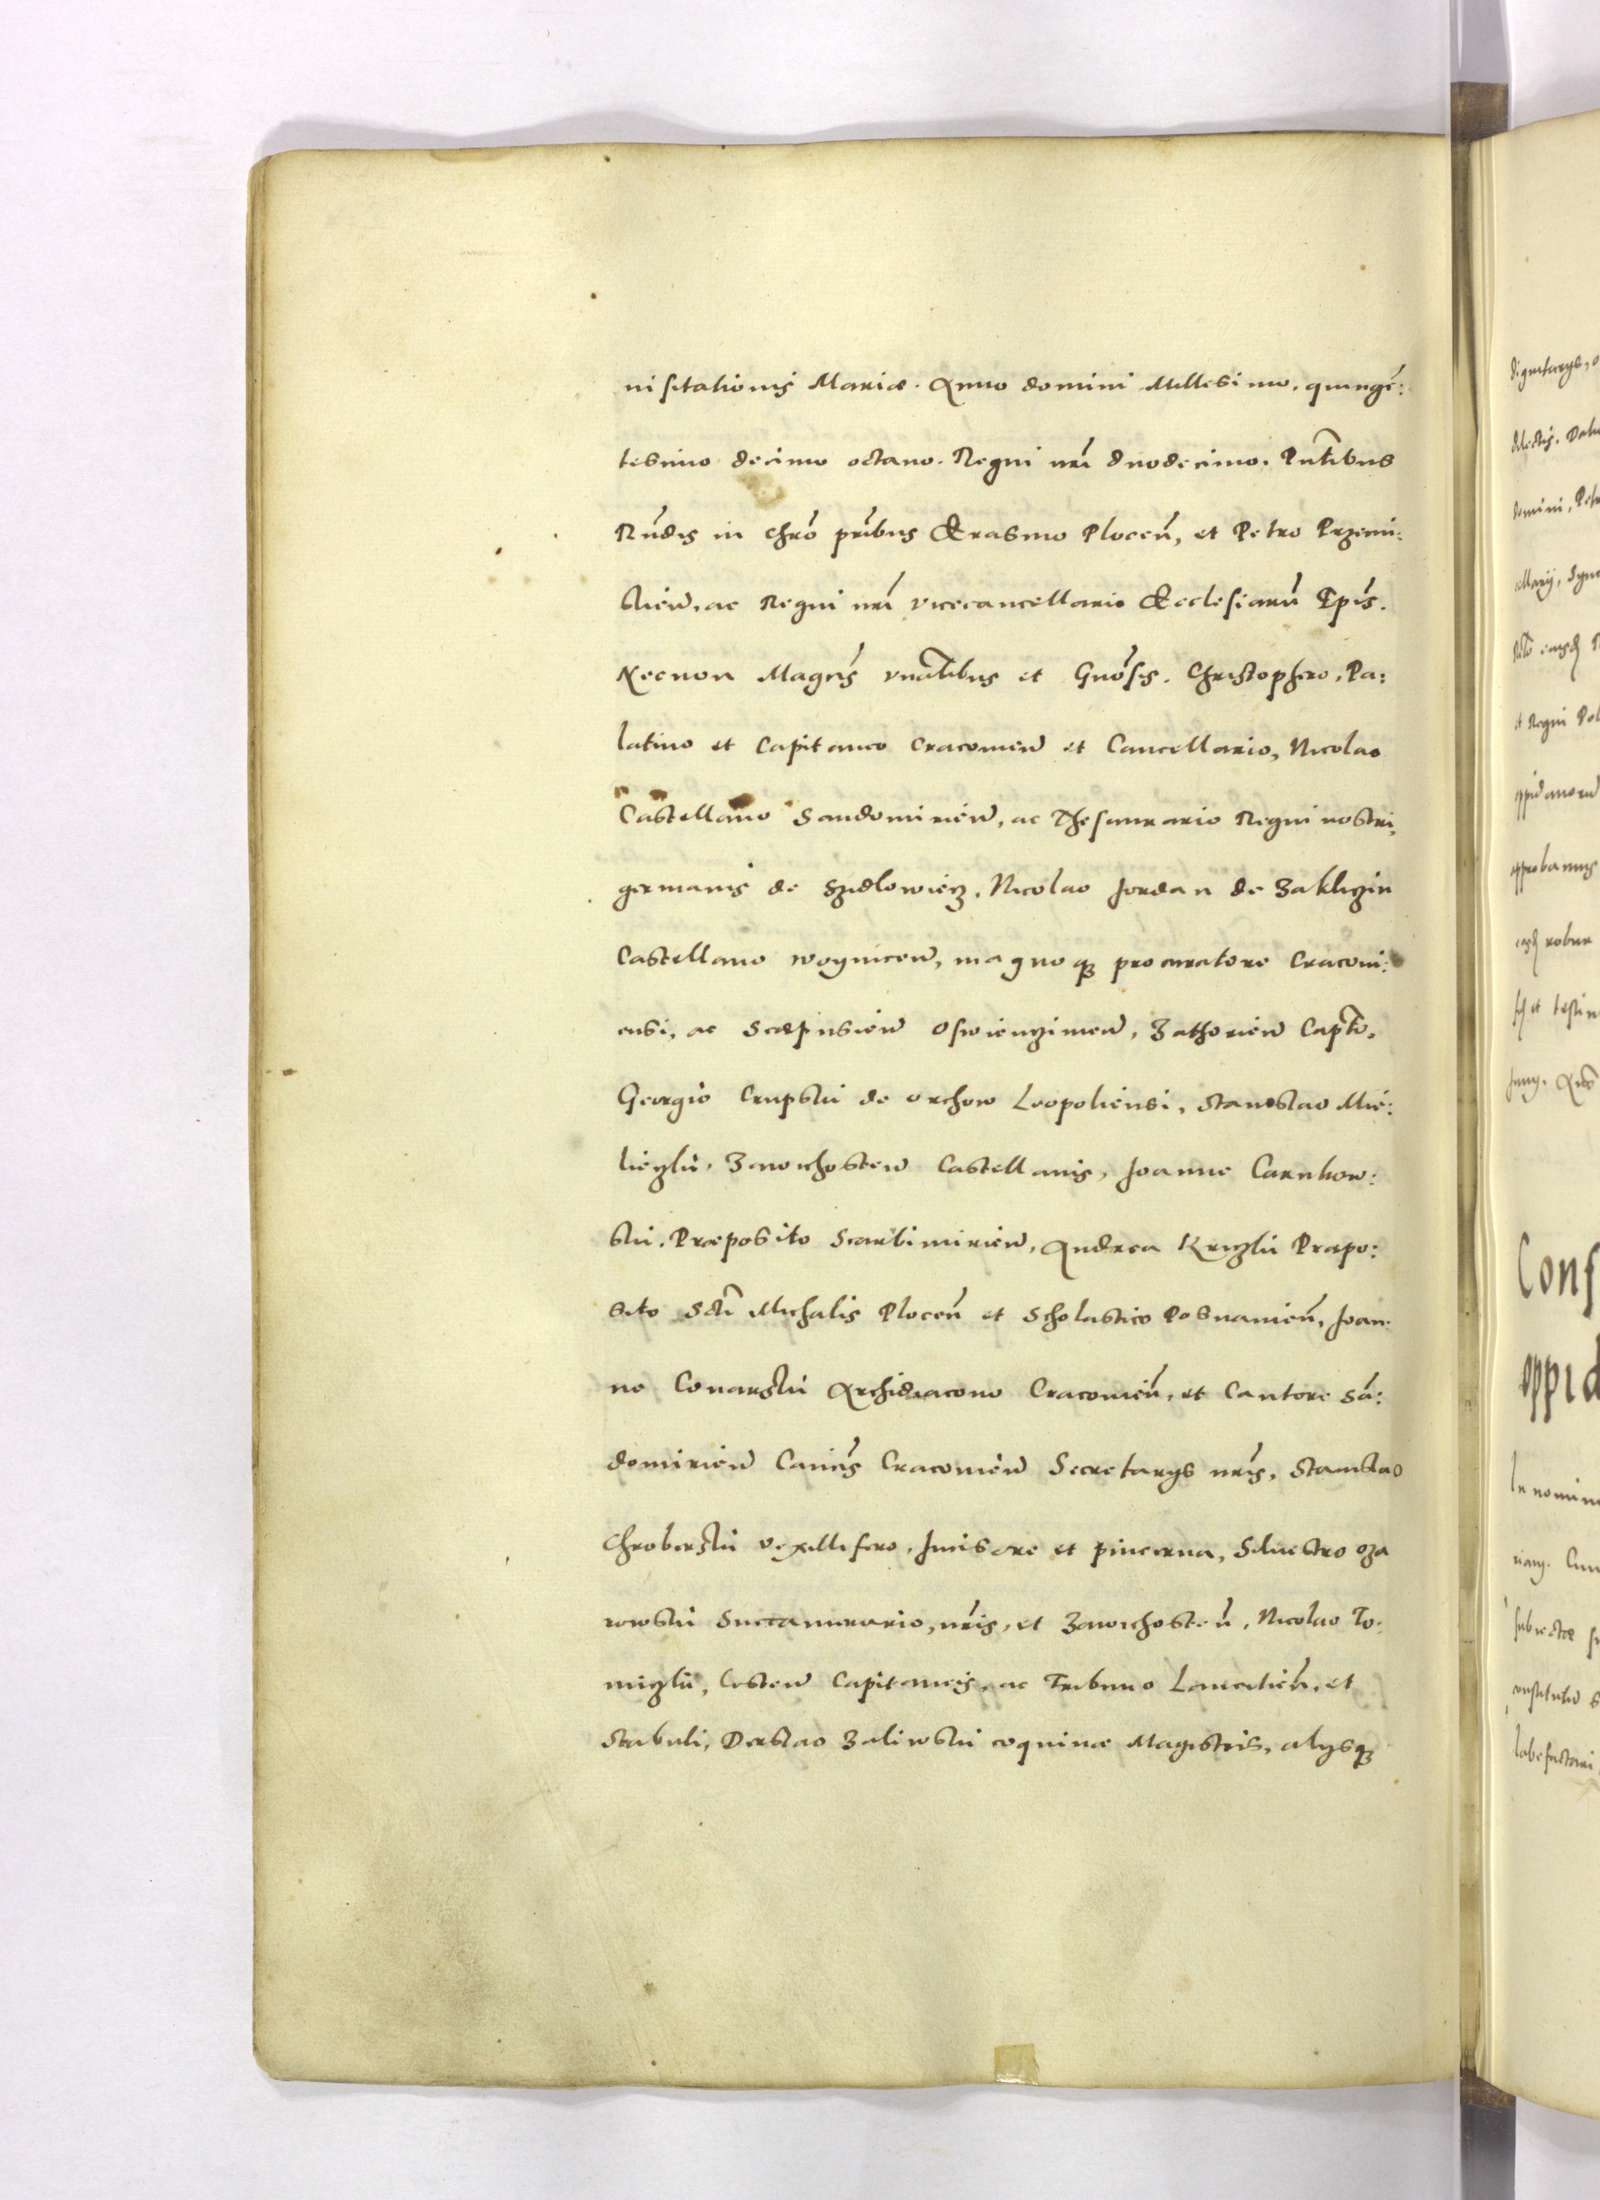 visitationis Mariæ. Anno domini Millesimo, quingē:
tesimo decimo octavo. Regni nrī duodecimo. Pntībus
Rn̄dis in chrō prībus Erasmo Plocen̄, et Petro Przemi:
slien̄, ac Regni nrī vicecancellario Ecclesiarū Epīs.
Necnon Magcīs vnātibus et Gnōsis. Christophero, Pa:
latino et Capitaneo Cracovien̄ et Cancellario, Nicolao
Castellano Sandomirien̄, ac Thesaurario Regni nostri,
germanis de Szidlowiecz, Nicolao Jordan de Zakliczin
Castellano woynicen̄, magnoq3 procuratore Cracovi:
ensi, ac Scæpusien̄ Oswienczimen̄, Zathorien̄ Captō.
Georgio Crupski de orchow Leopoliensi, Stanislao Mie:
lieczki, Zawichosten̄ Castellanis, Joanne Carnkow:
ski. Præposito Scarbimirien̄, Andrea Kriczki Præpo:
sito Sctī Michalis Plocen̄ et Scholastico Posnanien̄, Joan:
ne Conarski Archidiacono Cracovien̄, et Cantore Sā:
domirien̄ Canicīs Cracovien̄ Secretarys nrīs, Stanislao
Chroberski vexillifero, Incisore et pincerna, Silvestro oza
rowski Succamerario, nrīs, et Zawichosten̄, Nicolao To:
miczki, Costen̄ Capitaneis, ac Tribuno Lancicien̄, et
Stabuli, Derslao Zaliwski coquinæ Magistris, alysq3
dignitarys,
dilectis. Datu
domini, Petr
ellarij,
et Regni Pol
oppidanorū
approbamus
robur
et testim
Cons
oppid
In nomin
subiectæ
labefactari